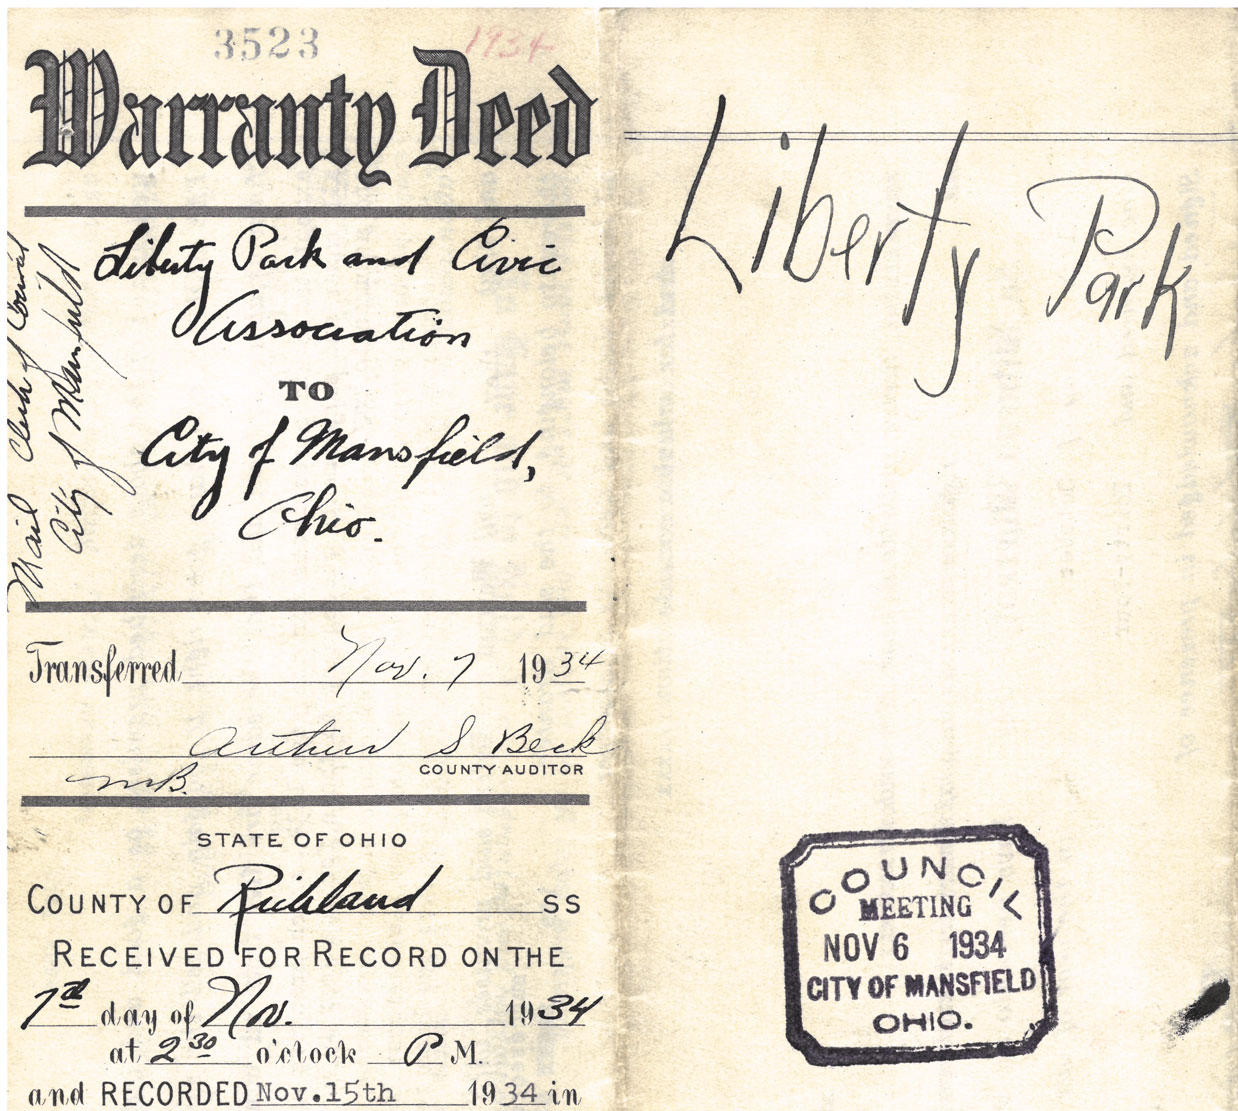 3523 1934
Warranty Deed
Liberty Park and Civic
Association
TO
City of Mansfield,
Ohio.
Mail Clerk of Council
City of Mansfield
Transferred Nov. 7 1934
Arthur S Beck
COUNTY AUDITOR
MB.
STATE OF OHIO
COUNTY OF Richland SS
RECEIVED FOR RECORD ON THE
7th day of Nov. 1934
at 2 30 o'clock P M.
and RECORDED Nov.15th 1934 in
Liberty Park
COUNCIL
MEETING
NOV 6 1934
CITY OF MANSFIELD
OHIO.